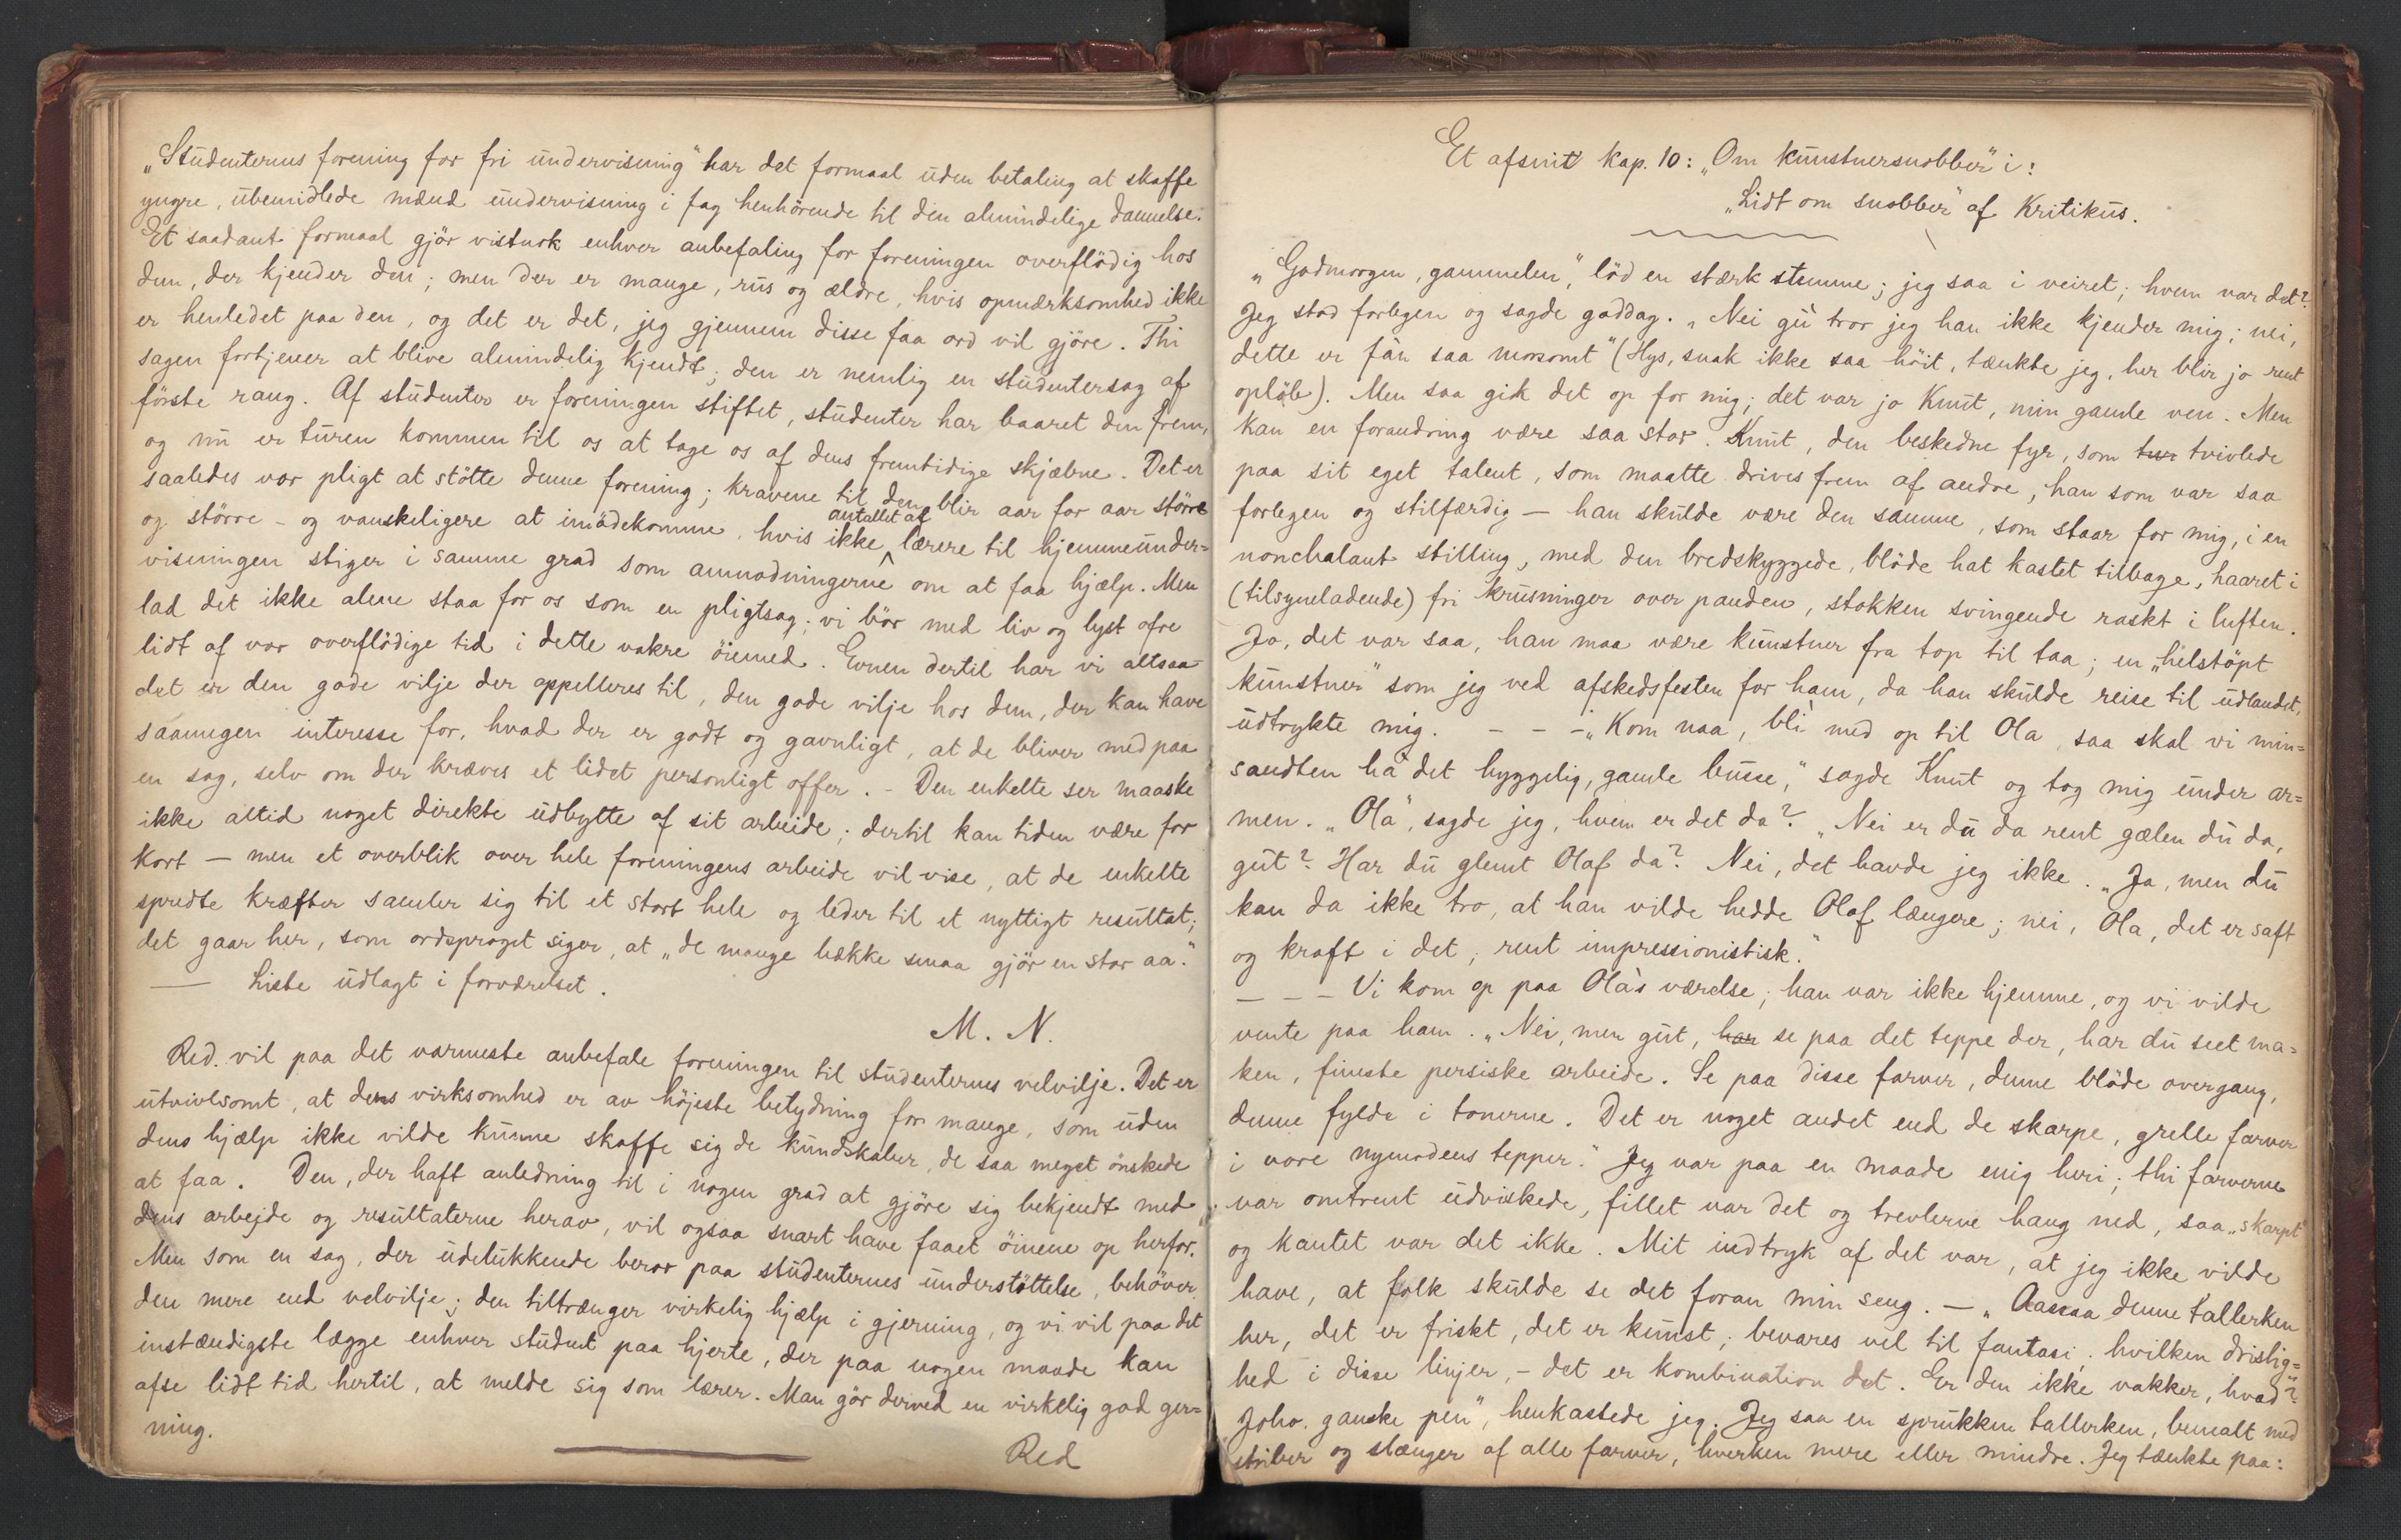 „Studenternes forening for fri undervisning" har det formaal uden betaling at skaffe
yngre, ubemidlede mænd undervisning i fag henhörende til den almindelige dannelse.
Et saadant formaal gjör vistnok enhver anbefaling for foreningen overflödig hos
den, der kjender den; men der er mange, rus og ældre, hvis opmærksomhed ikke
er henledet paa den, og det er det, jeg gjennem disse faa ord vil gjöre. Thi
sagen fortjener at blive almindelig kjendt; den er nemlig en studentersag af
förste rang. Af studenter er foreningen stiftet, studenter har baaret den frem,
og nu er turen kommen til os at tage os af dens fremtidige skjæbne. Det er
saaledes vor pligt at stötte denne forening; kravene til den blir aar for aar större
og större – og vanskeligere at imödekomme, hvis ikke antallet af lærere til hjemmeunder=
visningen stiger i samme grad som anmodningerne om at faa hjælp. Men
lad det ikke alene staa for os som en pligtsag; vi bör med liv og lyst ofre
lidt af vor overflödige tid i dette vakre öiemed. Evnen dertil har vi altsaa
det er den gode vilje der appelleres til, den gode vilje hos dem, der kan have
saamegen interesse for, hvad der er godt og gavnligt, at de bliver med paa
en sag, selv om der kræves et lidet personligt offer. – Den enkelte ser maaske
ikke altid noget direkte udbytte af sit arbeide; dertil kan tiden være for
kort – men et overblik over hele foreningens arbeide vil vise, at de enkelte
spredte kræfter samler sig til et stort hele og leder til et nyttigt resultat;
det gaar her, som ordsproget siger, at „de mange bække smaa gjör en stor aa."
— Liste udlagt i forværelset.
M. N.
Red. vil paa det varmeste anbefale foreningen til studenternes velvilje. Det er
utvivlsomt, at dens virksomhed er av höjeste betydning for mange, som uden
dens hjælp ikke vilde kunne skaffe sig de kundskaber, de saa meget önskede
at faa. Den, der haft anledning til i nogen grad at gjöre sig bekjendt med
dens arbejde og resultaterne herav, vil ogsaa snart have faaet öinene op herfor.
Men som en sag, der udelukkende beror paa studenternes understöttelse, behöver
den mere end velvilje; den tiltrænger virkelig hjælp i gjerning, og vi vil paa det
instændigste lægge enhver student paa hjerte, der paa nogen maade kan
afse lidt tid hertil, at melde sig som lærer. Man gör derved en virkelig god ger=
ning.
Red
Et afsnit Kap. 10: „Om kunstnersnobber" i:
„Lidt om snobber" af Kritikus.
„Godmorgen, gammelen," löd en stærk stemme; jeg saa i veiret; hvem var det?
Jeg stod forlegen og sagde goddag. „Nei gu tror jeg han ikke kjender mig; nei,
dette er fan saa morsomt" (Hys, snak ikke saa höit, tænkte jeg, her blir jo rent
opløb). Men saa gik det op for mig; det var jo Knut, min gamle ven. Men
kan en forandring være saa stor. Knut, den beskedne fyr, som tvivlede
paa sit eget talent, som maatte drives frem af andre, han som var saa
forlegen og stilfærdig – han skulde være den samme, som staar for mig, i en
nonchalant stilling, med den bredskyggede, blöde hat kastet tilbage, haaret i
(tilsyneladende) fri krusninger over panden, stokken svingende raskt i luften.
Jo, det var saa, han maa være kunstner fra top til taa; en „helstöpt
kunstner" som jeg ved afskedsfesten for ham, da han skulde reise til udlandet,
udtrykte mig. – – – „Kom naa, bli med op til Ola, saa skal vi min=
sandten ha det hyggelig, gamle busse," sagde Knut og tog mig under ar=
men. „Ola", sagde jeg, hvem er det da? „Nei er du da rent gælen du da,
gut? Har du glemt Olaf da? Nei, det havde jeg ikke. „Ja, men du
kan da ikke tro, at han vilde hedde Olaf længere; nei, Ola, det er saft
og kraft i det, rent impressionistisk."
– – – Vi kom op paa Ola's værelse; han var ikke hjemme, og vi vilde
vente paa ham. „Nei, men gut, har se paa det teppe der, har du seet ma=
ken, fineste persiske arbeide. Se paa disse farver, denne blöde overgang,
denne fylde i tonerne. Det er noget andet end de skarpe, grelle farver
i vore nymodens tepper." Jeg var paa en maade enig heri; thi farverne
var omtrent udviskede, fillet var det og trevlerne hang ned, saa „skarpt"
og kantet var det ikke. Mit indtryk af det var, at jeg ikke vilde
have, at folk skulde se det foran min seng. – „Aassaa denne tallerken
her, det er friskt, det er kunst; bevares vel til fantasi, hvilken dristig=
hed i disse linjer, – det er kombination det. Er den ikke vakker, hvad?"
Joho, ganske pen", henkastede jeg. Jeg saa en sprukken tallerken, bemalt med
striber og slænger af alle farver, hverken mere eller mindre. Jeg tænkte paa: